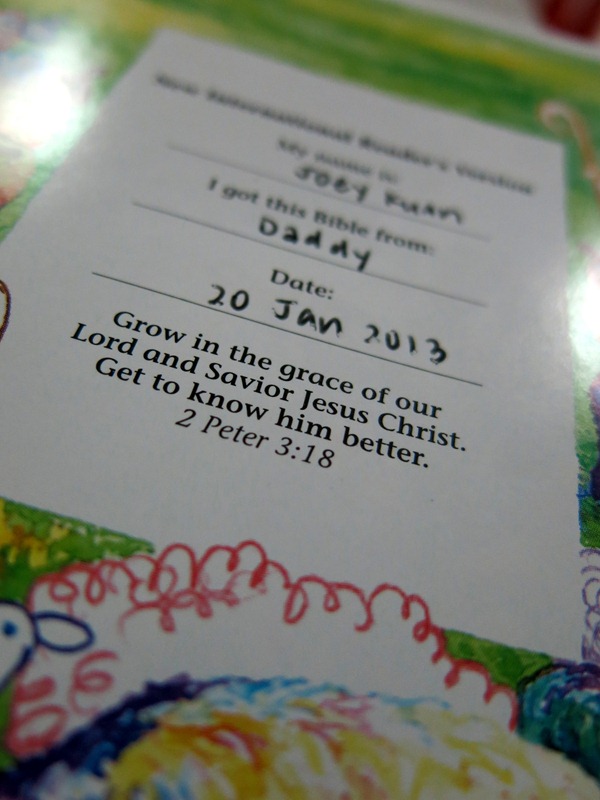 New International Reader's Version
My name is:
Joey Kuan
I got this Bible from:
Daddy
Date:
20 Jan 2013
Grow in the grace of our
Lord and Savior Jesus Christ.
Get to know him better.
2 Peter 3:18